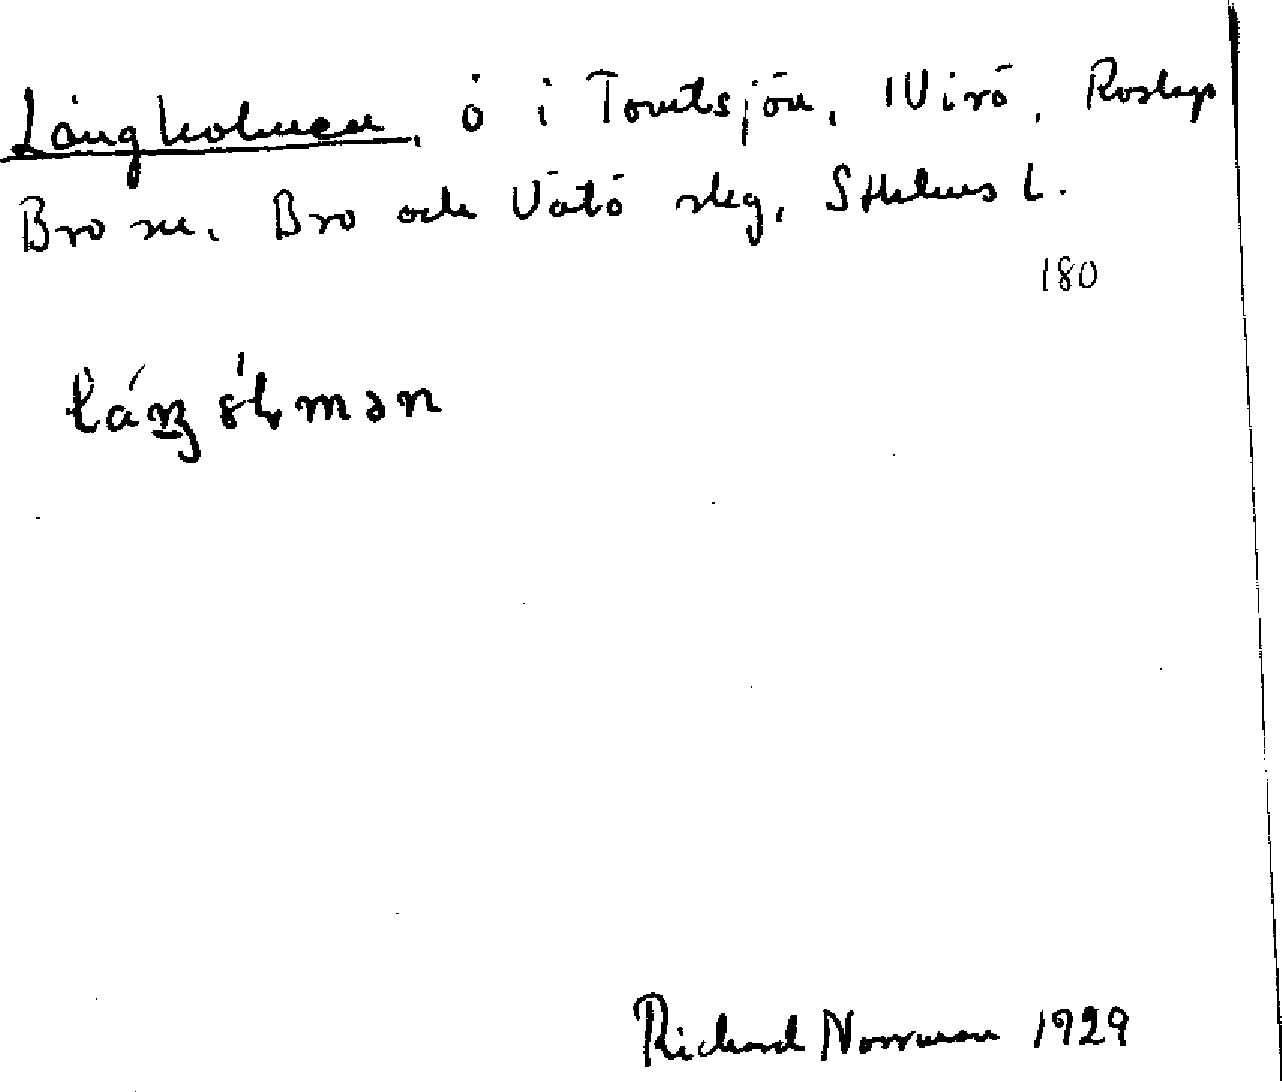 Långholmen, ö i Tomtsjön, Nirö, Roslags
Bro sn. Bro och Vätö skg, Sthlms L.
180
Richard Norrman 1929